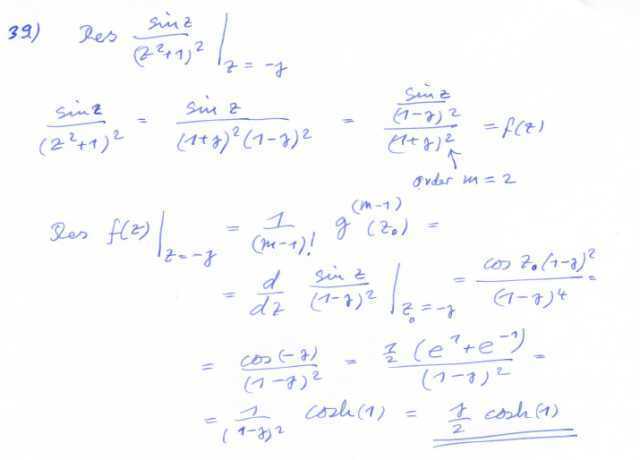 39) Res sin z / (z²+1)² | z = -j
sin z / (z²+1)² = sin z / (1+j)²(1-j)² = (sin z / (1-j)²) / (1+j)² = f(z)
order m = 2
Res f(z) | z=-j = 1 / (m-1)! g^(m-1) (z₀) =
= d/dz sin z / (1-j)² | z₀ = -j = cos z₀ (1-j)² / (1-j)⁴ =
= cos (-j) / (1-j)² = ½ (e¹ + e⁻¹) / (1-j)² =
= 1 / (1-j)² cosh(1) = j/2 cosh(1)